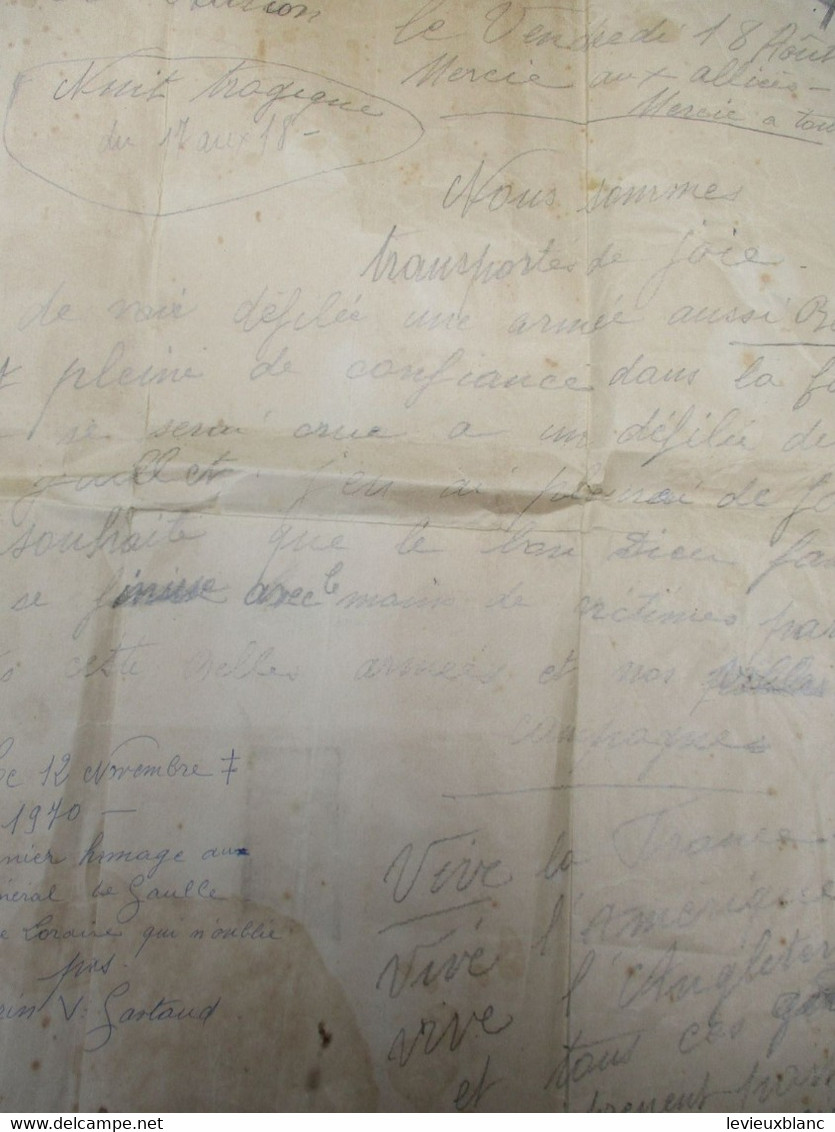 le Vendredi 18 Août
Mercie aux alliés -
Mercie a tou
Nuit tragique
du 17 aux 18 -
Nous sommes
transportes de joie.
de voir défilée une armée aussi B
pleine de confiance dans la f
je serai crue a un défilée de
juillet j'en ai pleuré de jo
souhaite que le bon Dieu fa
se finisse avec le moins de victimes par
cette belles armées et nos
campagnes
le 12 Novembre ‡
1970 -
nier homage aux
néral de Gaulle
e Loraine qui n'oublie
pas.
V. Gastaud
Vive la France
Vive l'Amerique
vive l'Angleter
et tous ces